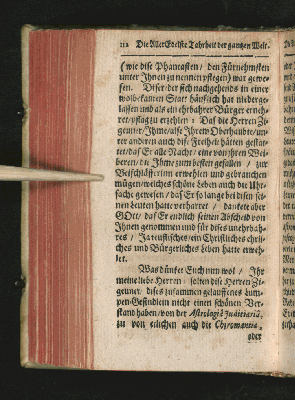 112 Die AllerEdelste Tohrheit der gantzen Welt.
(wie dise Phantasten / den Fürnehmsten
unter Ihnen zu nennen pflegen) war gewe-
sen. Diser / der sich nachgehends in einer
wolbekanten Statt häußlich hat niderge-
lassen und als ein ehrbahrer Bürger erneh-
ret / pflag zu erzehlen : Daß die Herren Zi-
geuner / Ihme / alse Ihrem Oberhaubte / un-
ter anderen auch dise Freiheit hätten gestat-
tet / daß Er alle Nacht / eine von ihren Wei-
beren / die Ihme zum besten gefallen / zur
Beischläfferinn erwehlen und gebrauchen
mügen / welches schöne Leben auch die Uhr-
sache gewesen / daß Er so lange bei disen sei-
nen Leuten hatte verharret / danckete aber
GOtt / daß Er endlich seinen Abscheid von
Ihnen genommen und für dises unehrbah-
res / Teuflisches / ein Christliches ehrli-
ches und Bürgerliches Leben hatte erweh-
let.
Was düncket Euch nun wol / Ihr
meine liebe Herren / solten die Herren Zi-
geuner / dises zusammen gelauffenes Lum-
pen-Gesindlein nicht einen schönen Ver-
stand haben / von der Astrologiâ Judiciariâ,
zu von etlichen auch die Chiromantia,
oder